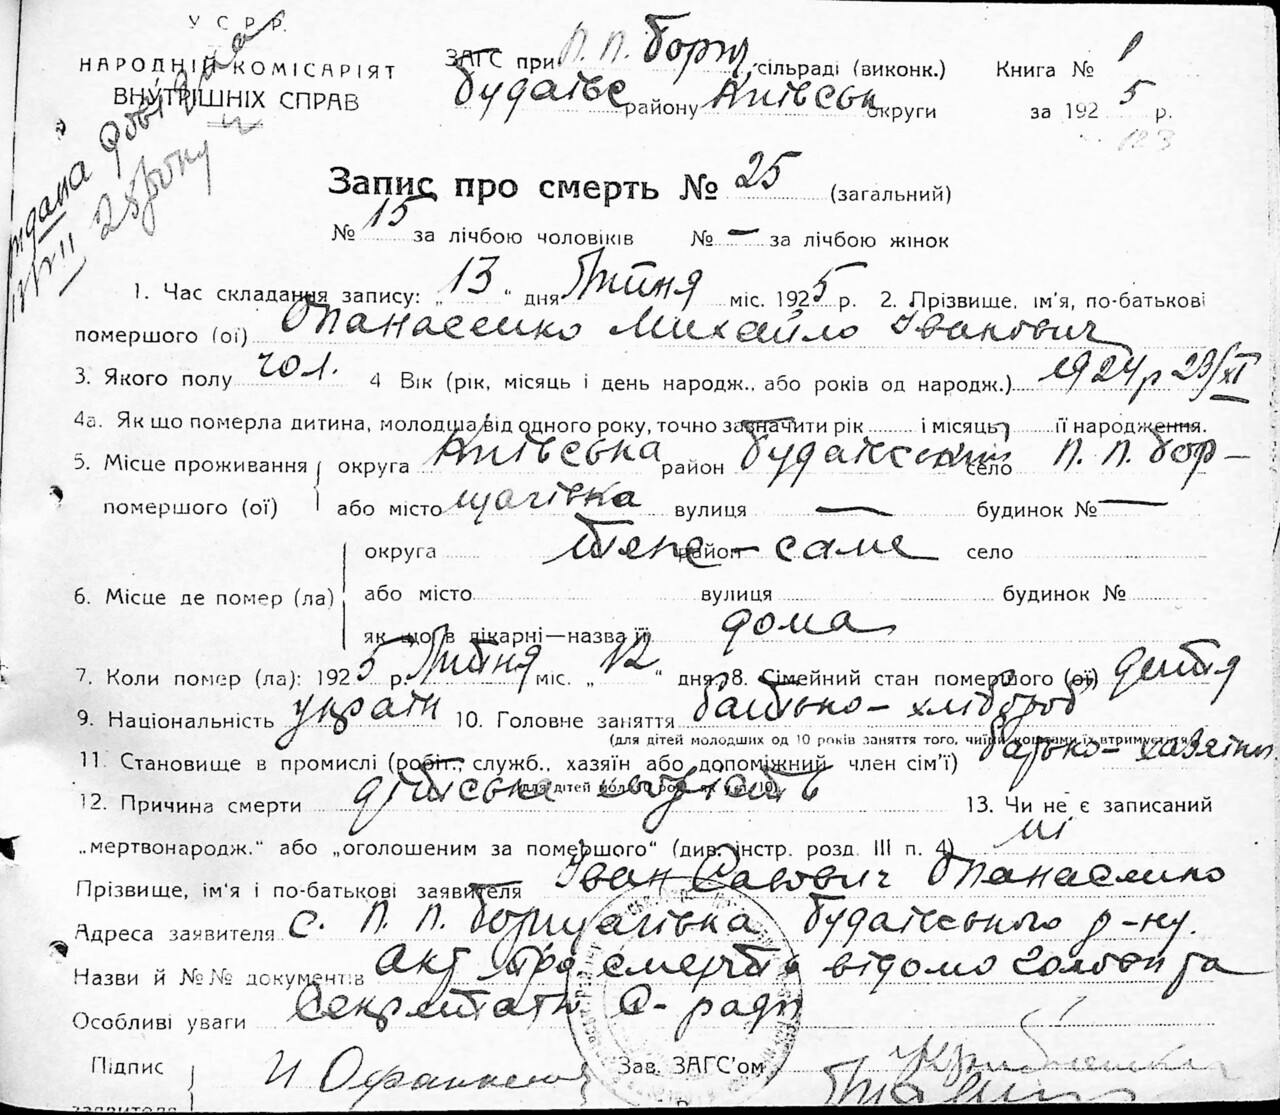 У С Р Р.
НАРОДНІЙ КОМІСАРІЯТ
ВНУТРІШНІХ СПРАВ
ЗАГС при П. П. Борщ. сільраді (виконк.)
Будаївс району Київськ округи
Книга № 1
за 1925 р.
123
Запис про смерть № 25 (загальний)
№ 15 за лічбою чоловіків № — за лічбою жінок
1. Час складання запису: „ 13 “ дня Липня міс. 1925 р. 2. Прізвище, ім'я, по-батькові
помершого (ої) Опанасенко Михайло Іванович
3. Якого полу чол. 4 Вік (рік, місяць і день народж., або років од народж.) 1924 р 23/XI
4а. Як що померла дитина, молодша від одного року, точно зазначити рік і місяць її народження.
5. Місце проживання округа Київська район Будаївський село П. П. Бор-
помершого (ої) або місто щагівка вулиця — будинок № —
округа теж-саме район село
6. Місце де помер (ла) або місто вулиця будинок №
як що в лікарні—назва її дома
7. Коли помер (ла): 1925 р. Липня міс. „ 12 “ дня 8. Сімейний стан помершого (ої) дитя
9. Національність украін 10. Головне заняття батько-хлібороб
(для дітей молодших од 10 років заняття того, чиїми коштами їх втримується)
11. Становище в промислі (робіт., служб., хазяїн або допоміжний член сім'ї) батько-хазяїн
12. Причина смерти дітська 13. Чи не є записаний
„мертвонародж.“ або „оголошеним за помершого“ (див. інстр. розд. III п. 4) ні
Прізвище, ім'я і по-батькові заявителя Іван Савович Опанасенко
Адреса заявителя с. П. П. Борщагівка Будаївського р-ну.
Назви й №№ документів Акт про смерть відомо голови та
Особливі уваги Секретаря С-ради
Підпис Зав. ЗАГС'ом
заявителя